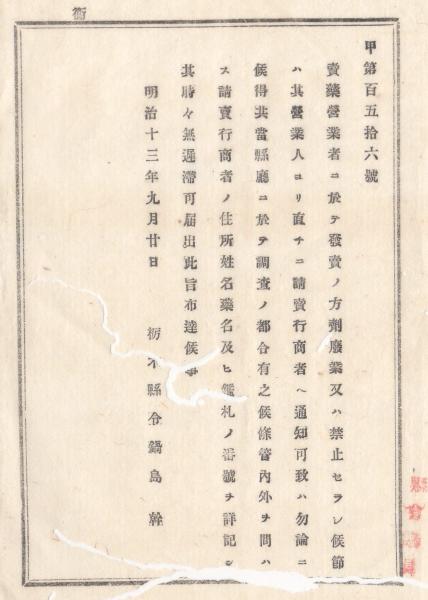 甲第百五拾六號
賣藥營業者ニ於テ發賣ノ方劑廢業又ハ禁止セラレ候節
ハ其營業人ヨリ直チニ請賣行商者ヘ通知可致ハ勿論ニ
候得共當縣廳ニ於テ調査ノ都合有之候條管內外ヲ問ハ
ス請賣行商者ノ住所姓名藥名及ヒ鑑札ノ番號ヲ詳記シ
其時々無遲滯可届出此旨布達候事
明治十三年九月廿日
栃木縣令鍋島幹
衛